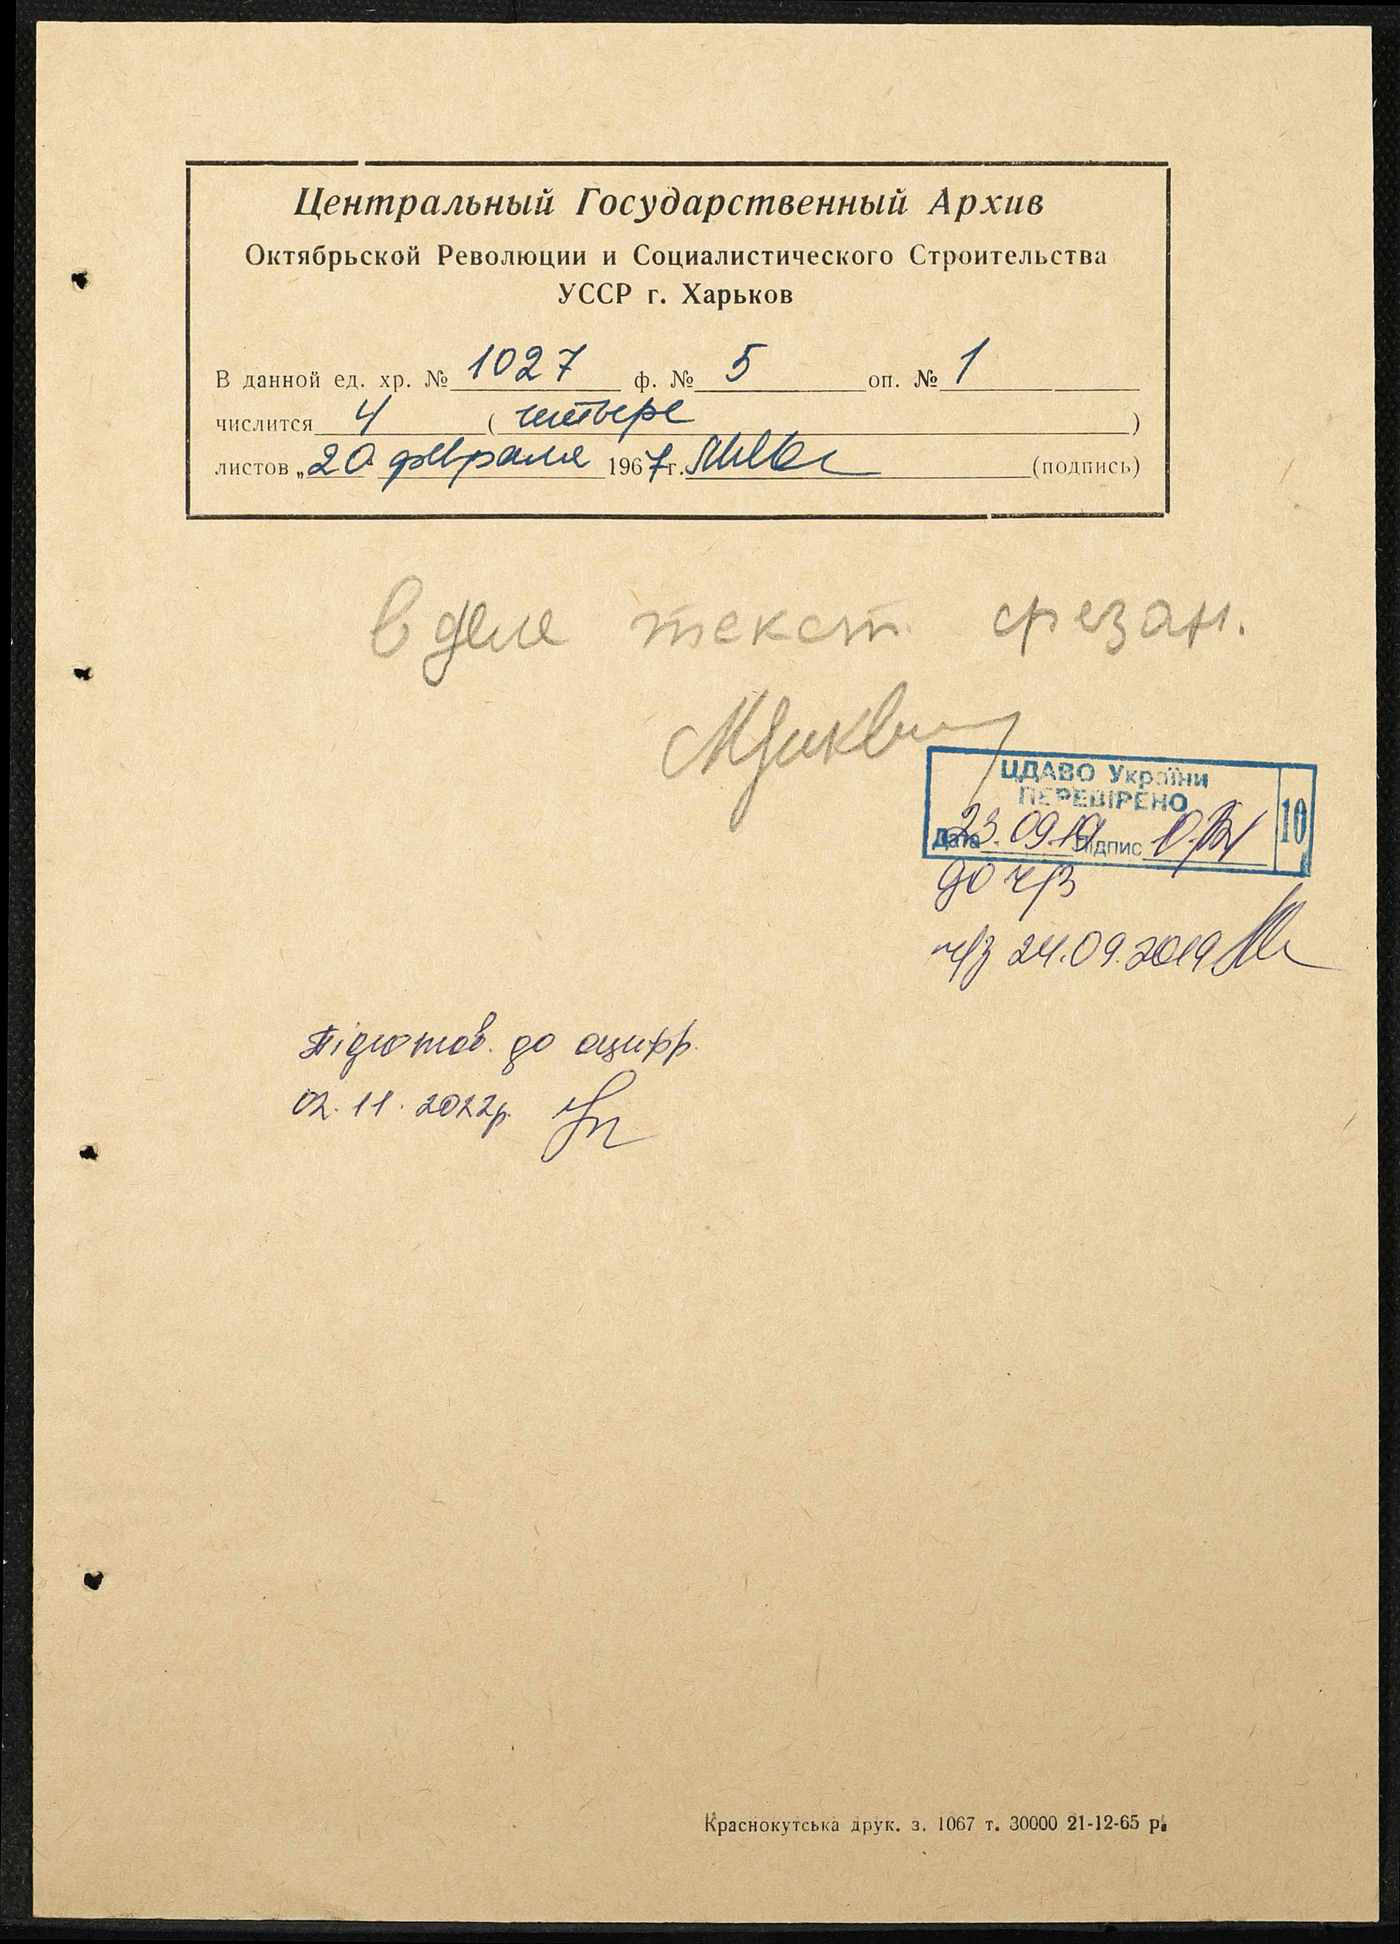 Центральный Государственный Архив
Октябрьской Революции и Социалистического Строительства
УССР г. Харьков
В данной ед. хр. № 1027 ф. № 5 оп. № 1
числится 4 (четыре)
листов „20 февраля 1967г. (подпись)
в деле текст срезан.
ЦДАВО України
ПЕРЕВІРЕНО
10
Дата 23.09.19 Підпис
до ч/з
ч/з 24.09.2019
Підготов. до оцифр.
02.11.2022р.
Краснокутська друк. з. 1067 т. 30000 21-12-65 р.